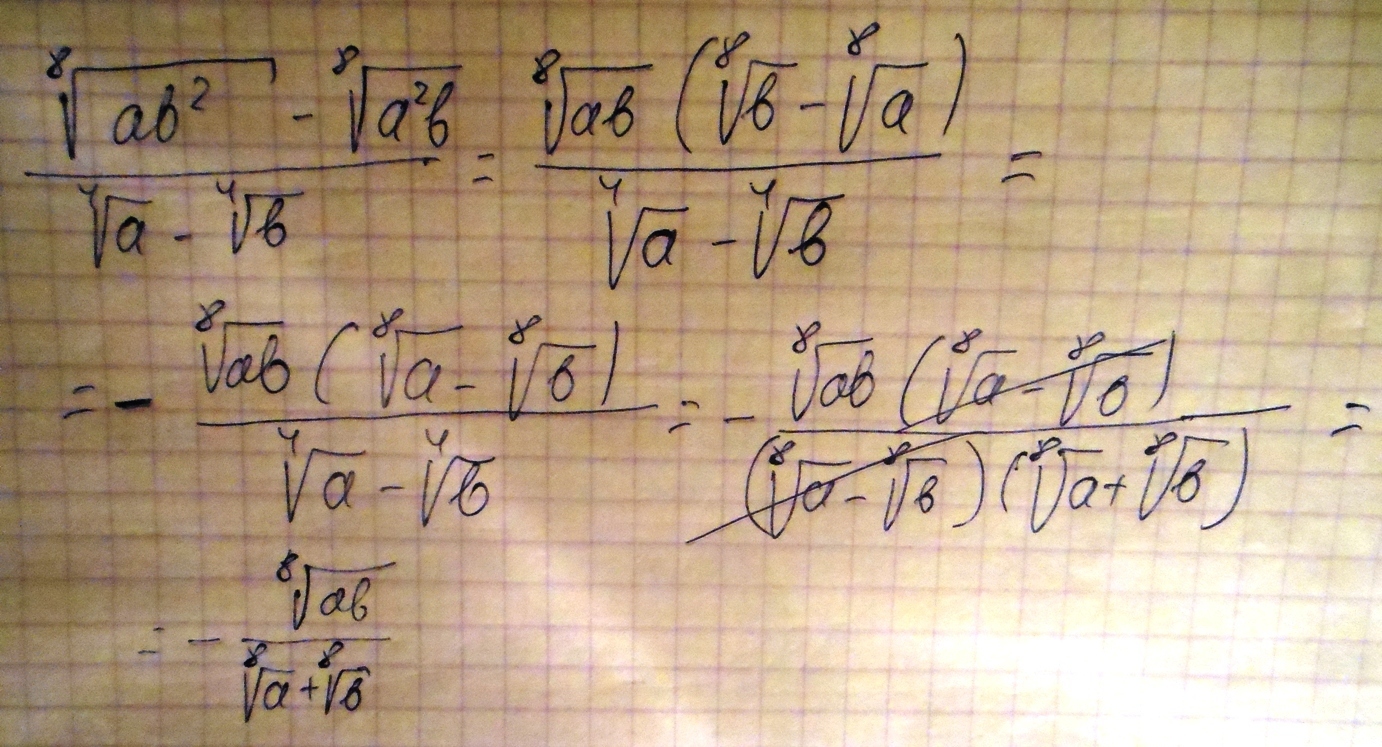 $\frac{\sqrt[8]{ab^2} - \sqrt[8]{a^2b}}{\sqrt[4]{a} - \sqrt[4]{b}} = \frac{\sqrt[8]{ab}(\sqrt[8]{b} - \sqrt[8]{a})}{\sqrt[4]{a} - \sqrt[4]{b}} =$
$= - \frac{\sqrt[8]{ab}(\sqrt[8]{a} - \sqrt[8]{b})}{\sqrt[4]{a} - \sqrt[4]{b}} = - \frac{\sqrt[8]{ab}(\sqrt[8]{a} - \sqrt[8]{b})}{(\sqrt[8]{a} - \sqrt[8]{b})(\sqrt[8]{a} + \sqrt[8]{b})} =$
$= - \frac{\sqrt[8]{ab}}{\sqrt[8]{a} + \sqrt[8]{b}}$